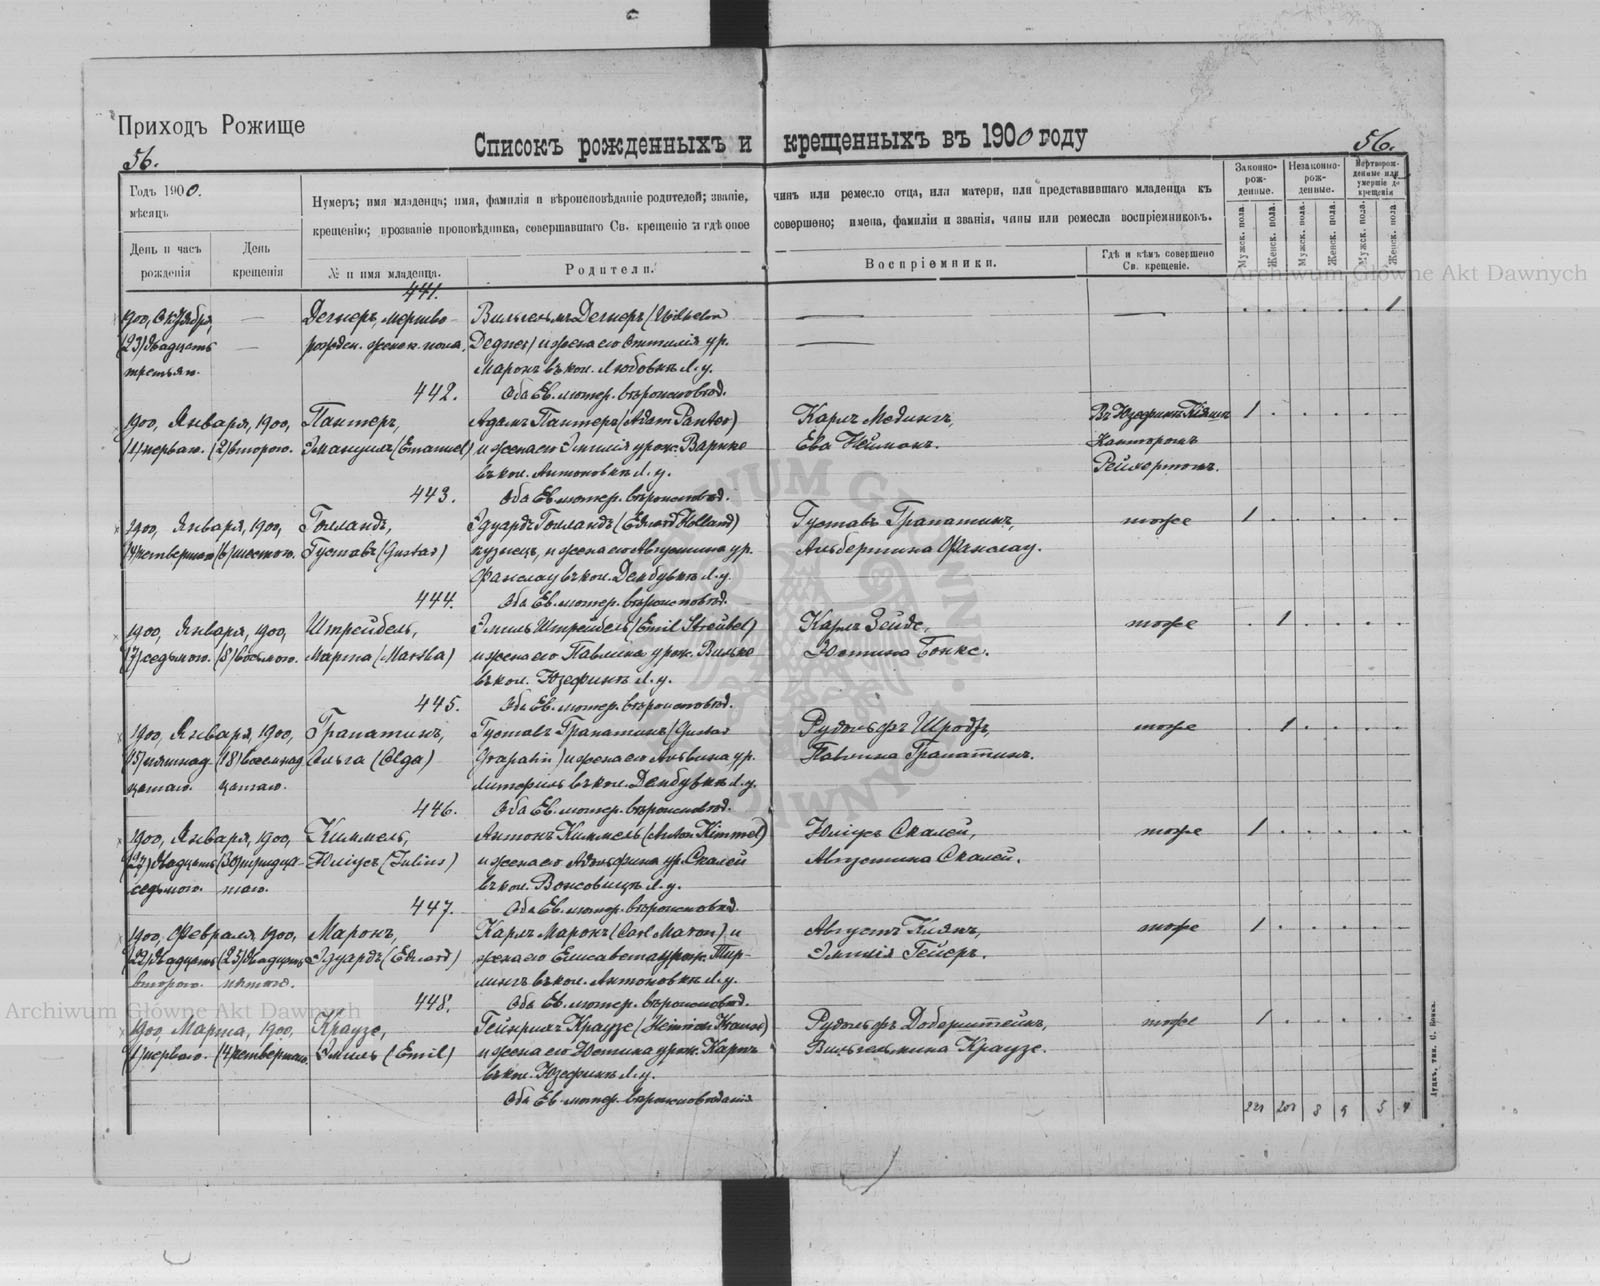 Приходъ Рожище
56.
Списокъ рожденныхъ и крещенныхъ въ 1900 году
56.
Годъ 1900.
мѣсяцъ
День и часъ рожденія
День крещенія
Нумеръ; имя младенца; имя, фамилія и вѣроисповѣданіе родителей; званіе, чинъ или ремесло отца, или матери, или представившаго младенца къ
крещенію; прозваніе проповѣдника, совершавшаго Св. крещеніе и гдѣ оное совершено; имена, фамиліи и званія, чины или ремесла воспріемниковъ.
№ и имя младенца.
Родители.
Воспріемники.
Гдѣ и кѣмъ совершено Св. крещеніе.
Законно-рож-денные.
Незаконно-рож-денные.
Мертворож-денные или умершіе до крещенія
Мужск. пола.
Женск. пола.
Мужск. пола.
Женск. пола.
Мужск. пола.
Женск. пола.
Archiwum Główne Akt Dawnych
441.
1900, Октября, — Дегнеръ, мертво- Вильгельмъ Дегнеръ (Wilhelm — — 1
(23) двадцать — рожден. женск. пола. Degner) и жена его Оттилія ур. —
третьяго. Маронъ въ кол. Любовкѣ Л. у.
442. Оба Ев. лютер. вѣроисповѣд.
1900, Января, 1900, Пантеръ, Адамъ Пантеръ (Adam Panter) Карлъ Медингъ, Въ Юзефинѣ 1
(1) перваго. (2) второго. Эмануилъ (Emanuel) и жена его Эмилія урож. Варнке Ева Нейманъ. Канторомъ
въ кол. Антоновкѣ Л. у. Рейхертомъ.
443. Оба Ев. лютер. вѣроисповѣд.
1900, Января, 1900, Голландъ, Эдуардъ Голландъ (Eduard Holland) Густавъ Грапатинъ, тоже 1
(4) четвертаго (6) шестого. Густавъ (Gustav) кузнецъ, и жена его Августина ур. Альбертина Фанслау.
Фанслау въ кол. Дембувкѣ Л. у.
444. Оба Ев. лютер. вѣроисповѣд.
1900, Января, 1900, Штрейбель, Эмиль Штрейбель (Emil Streubel) Карлъ Зейде, тоже 1
(7) седьмого. (8) восьмого. Марта (Martha) и жена его Павлина урож. Вильке Юстина Бонкс.
въ кол. Юзефинѣ Л. у.
445. Оба Ев. лютер. вѣроисповѣд.
1900, Января, 1900, Грапатинъ, Густавъ Грапатинъ (Gustav Рудольфъ Шродъ, тоже 1
(15) пятнад- (18) восемнад- Ольга (Olga) Grapatin) и жена его Альвина ур. Павлина Грапатинъ.
цатаго. цатаго. въ кол. Дембувкѣ Л. у.
446. Оба Ев. лютер. вѣроисповѣд.
1900, Января, 1900, Киммель, Антонъ Киммель (Anton Kimmel) Юліусъ Скалей, тоже 1
(27) двадцать (30) тридца- Юліусъ (Julius) и жена его Адольфина ур. Скалей Августина Скалей.
седьмого. таго. въ кол. Л. у.
447. Оба Ев. лютер. вѣроисповѣд.
1900, Февраля, 1900, Маронъ, Карлъ Маронъ (Carl Maron), и Августъ Киянъ, тоже 1
(22) двадцать (25) двадцать Эдуардъ (Eduard) жена его Елисавета урож. Тир- Эмилія Гейеръ.
второго. пятаго. лингъ въ кол. Антоновкѣ Л. у.
Archiwum Główne Akt Dawnych
448. Оба Ев. лютер. вѣроисповѣд.
1900, Марта, 1900, Краузе, Гейнрихъ Краузе (Heinrich Krause) Рудольфъ Доберштейнъ, тоже 1
(1) перваго. (4) четвертаго. Эмиль (Emil) и жена его Юстина урож. Карпъ Вильгельмина Краузе.
въ кол. Юзефинѣ Л. у.
Оба Ев. лютер. вѣроисповѣданія
221 201 8 9 5 4
Луцкъ, тип.
ARCHIWUM GŁÓWNE AKT DAWNYCH